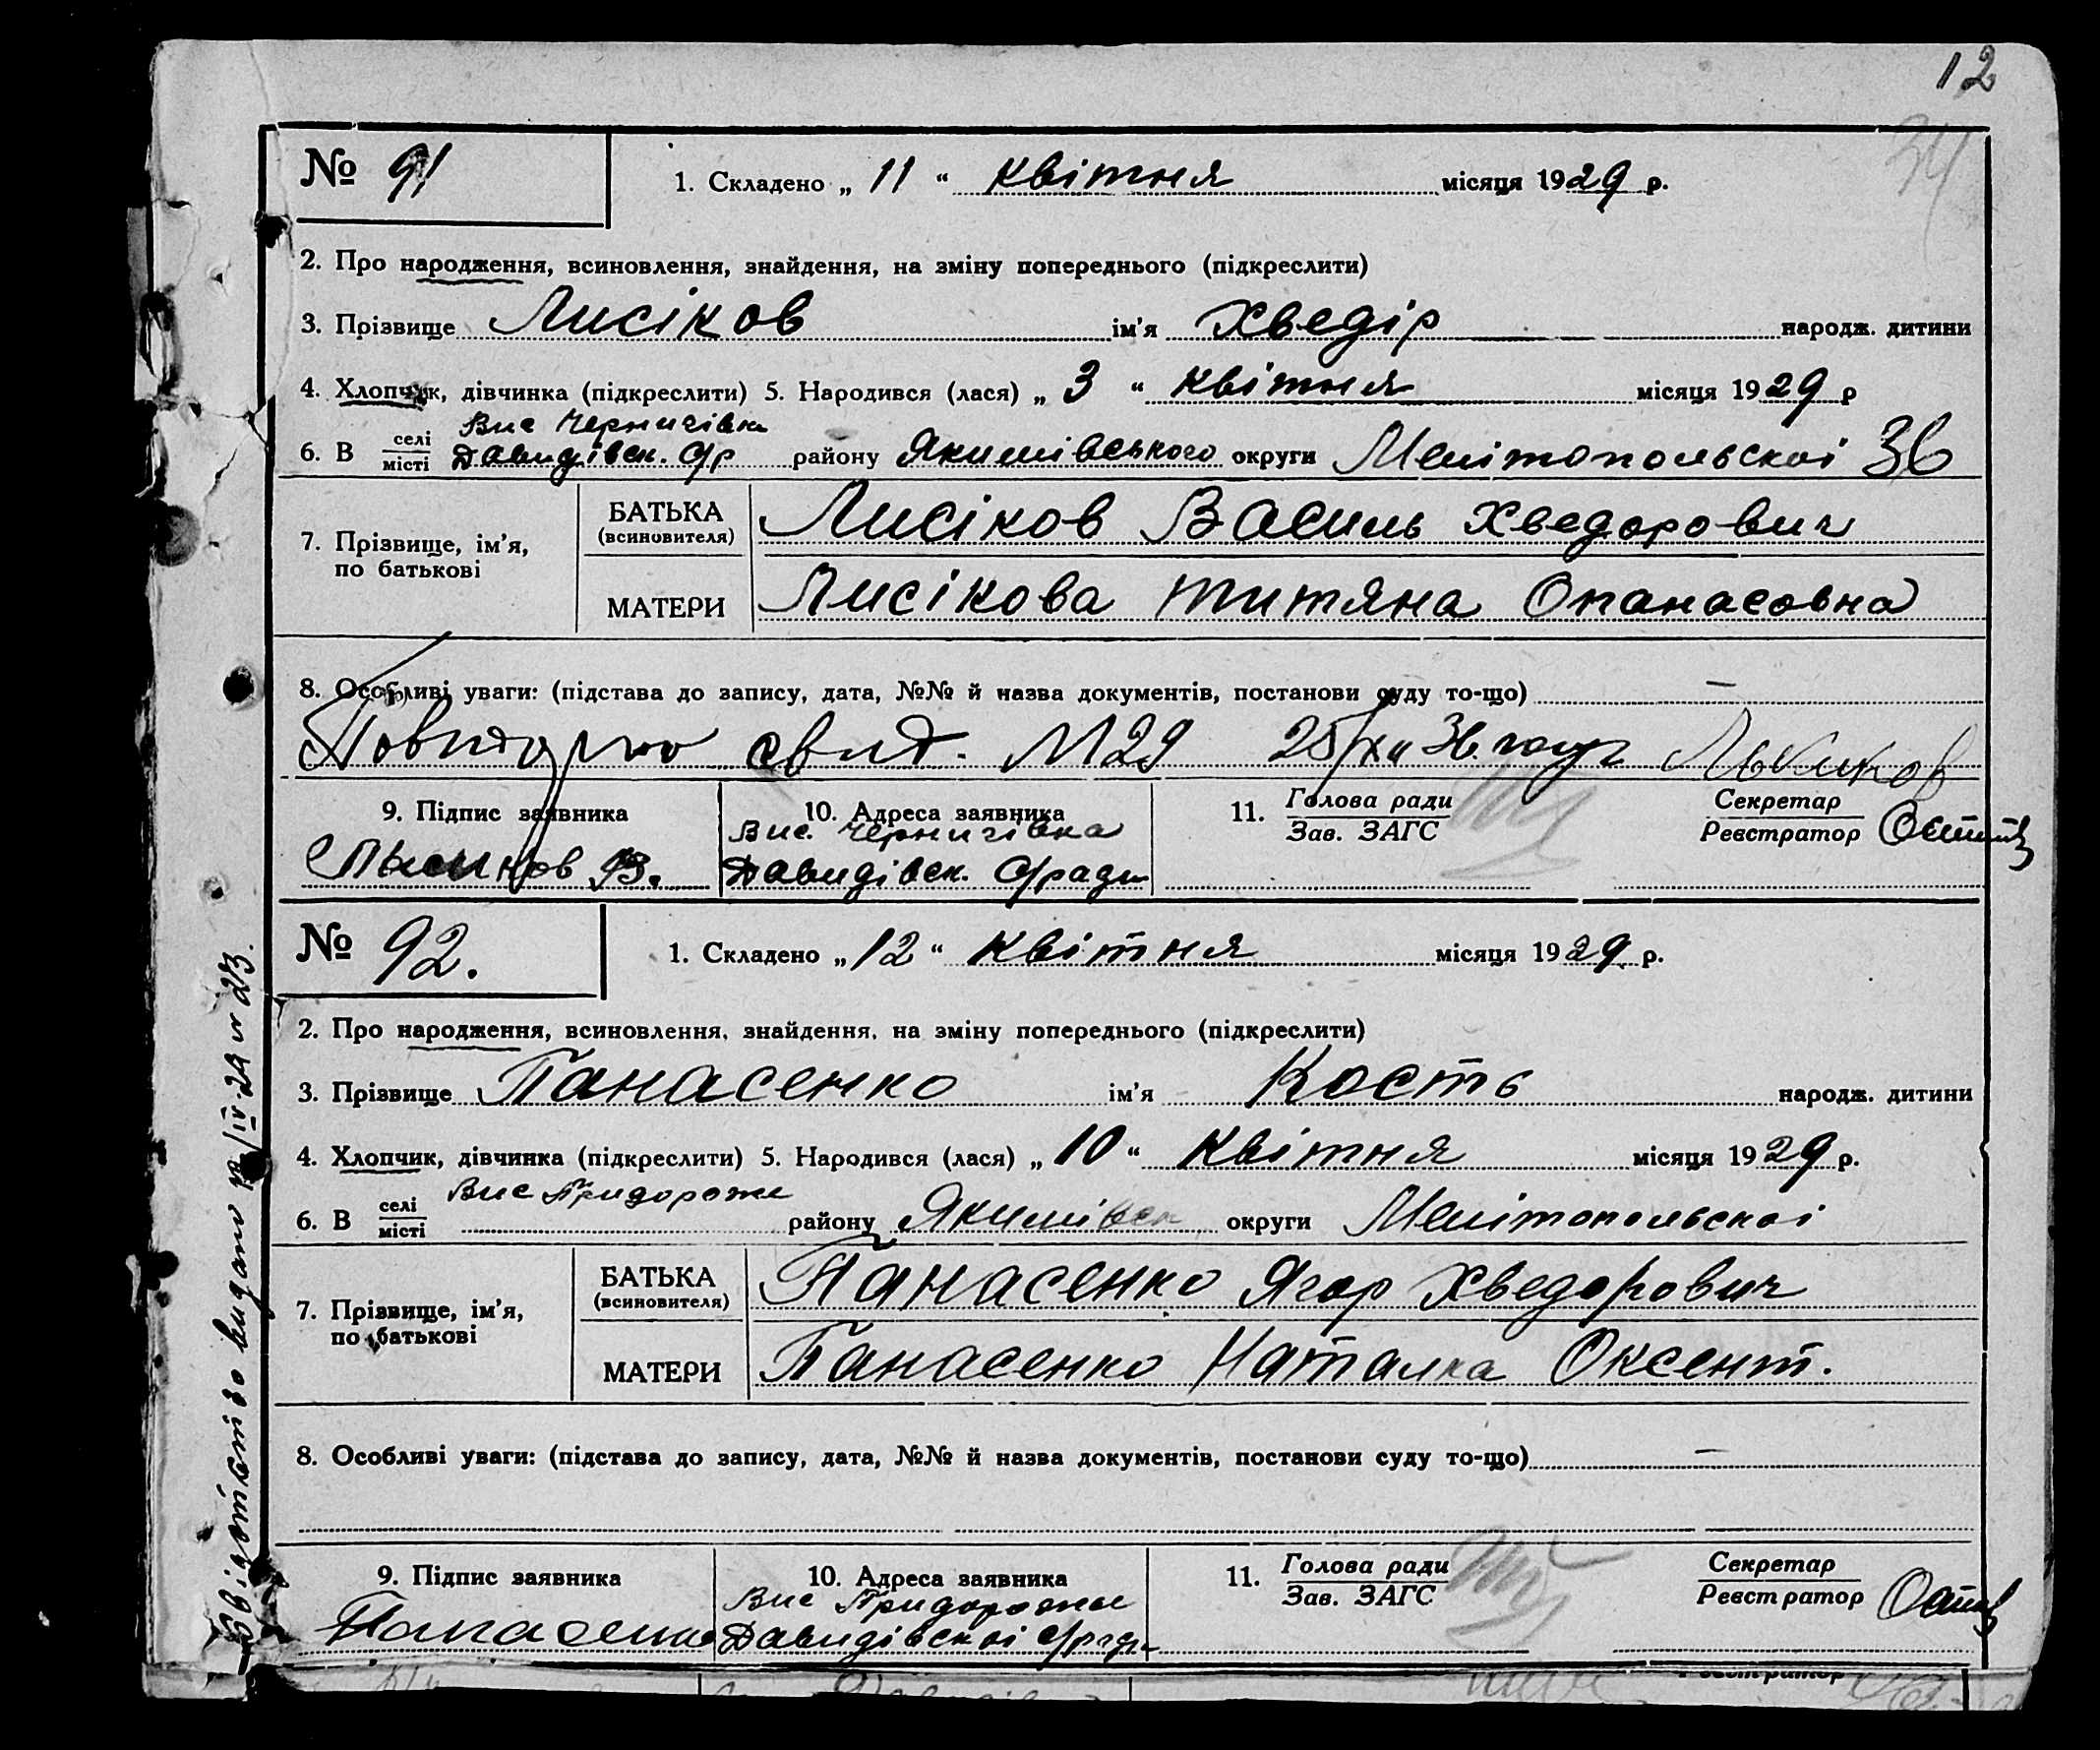 12
№ 91
1. Складено „ 11 “ квітня місяця 1929 р.
2. Про народження, всиновлення, знайдення, на зміну попереднього (підкреслити)
3. Прізвище Лисіков ім’я Хведір народж. дитини
4. Хлопчик, дівчинка (підкреслити) 5. Народився (лася) „ 3 “ квітня місяця 1929 р
Вис Чернигівка
6. В селі/місті Давидівск. с/р району Якимівського округи Мелітопольскоі
7. Прізвище, ім’я, по батькові
БАТЬКА (всиновителя) Лисіков Василь Хведорович
МАТЕРИ Лисікова Титяна Опанасовна
8. Особливі уваги: (підстава до запису, дата, №№ й назва документів, постанови суду то-що) —
Повторно свид. №29 25/
9. Підпис заявника
Лысиков В.
10. Адреса заявника
Вис. Чернигівка
Давидівск. с/ради
11. Голова ради
Зав. ЗАГС
Секретар
Реєстратор
№ 92.
1. Складено „ 12 “ квітня місяця 1929 р.
2. Про народження, всиновлення, знайдення, на зміну попереднього (підкреслити)
3. Прізвище Панасенко ім’я Кость народж. дитини
4. Хлопчик, дівчинка (підкреслити) 5. Народився (лася) „ 10 “ квітня місяця 1929 р.
Вис Придороже
6. В селі/місті району Якимівск округи Мелітопольскоі
7. Прізвище, ім’я, по батькові
БАТЬКА (всиновителя) Панасенко Ягор Хведорович
МАТЕРИ Панасенко Наталка Оксент.
8. Особливі уваги: (підстава до запису, дата, №№ й назва документів, постанови суду то-що) —
9. Підпис заявника
Панасенко
10. Адреса заявника
Вис Придороже
Давидівскоі с/ради
11. Голова ради
Зав. ЗАГС
Секретар
Реєстратор
Свідоцтво видано
Реєстратор